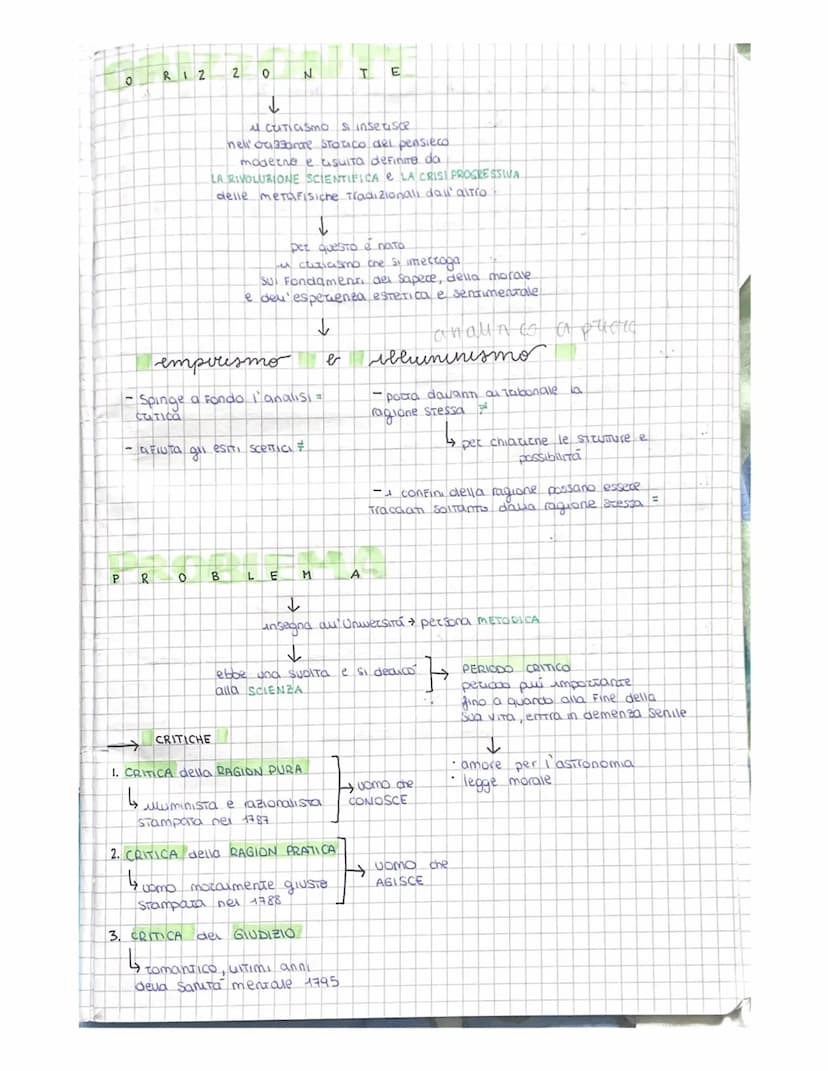 ORIZZONTE
↓
il criticismo si inserisce
nell'orizzonte storico del pensiero
moderno e risulta definito da
LA RIVOLUZIONE SCIENTIFICA e LA CRISI PROGRESSIVA
delle metafisiche tradizionali dall'altro.
↓
per questo é nato
un criticismo che si interroga
sui fondamenti del sapere, della morale
e dell'esperienza estetica e sentimentale
↓
analitico a priori
empirismo e illuminismo
- Spinge a fondo l'analisi =
critica
- rifiuta gli esiti scettici ≠
- porta davanti al tribonale la
ragione stessa ≠
↳ per chiarirne le strutture e
possibilità
- i confini della ragione possano essere
tracciati soltanto dalla ragione stessa =
PROBLEMA
↓
insegna all'Università → persona METODICA
↓
ebbe una svolta e si dedicó
alla SCIENZA
→ PERIODO CRITICO
periodo piú importante
fino a quando alla fine della
sua vita, entra in demenza senile
↓
· amore per l'astronomia
· legge morale
→ CRITICHE
1. CRITICA della RAGION PURA
↳ illuminista e razionalista
stampata nel 1787
→ uomo che
CONOSCE
2. CRITICA della RAGION PRATICA
↳ uomo moralmente giusto
stampata nel 1788
→ uomo che
AGISCE
3. CRITICA del GIUDIZIO
↳ romantico, ultimi anni
della sanità mentale 1795